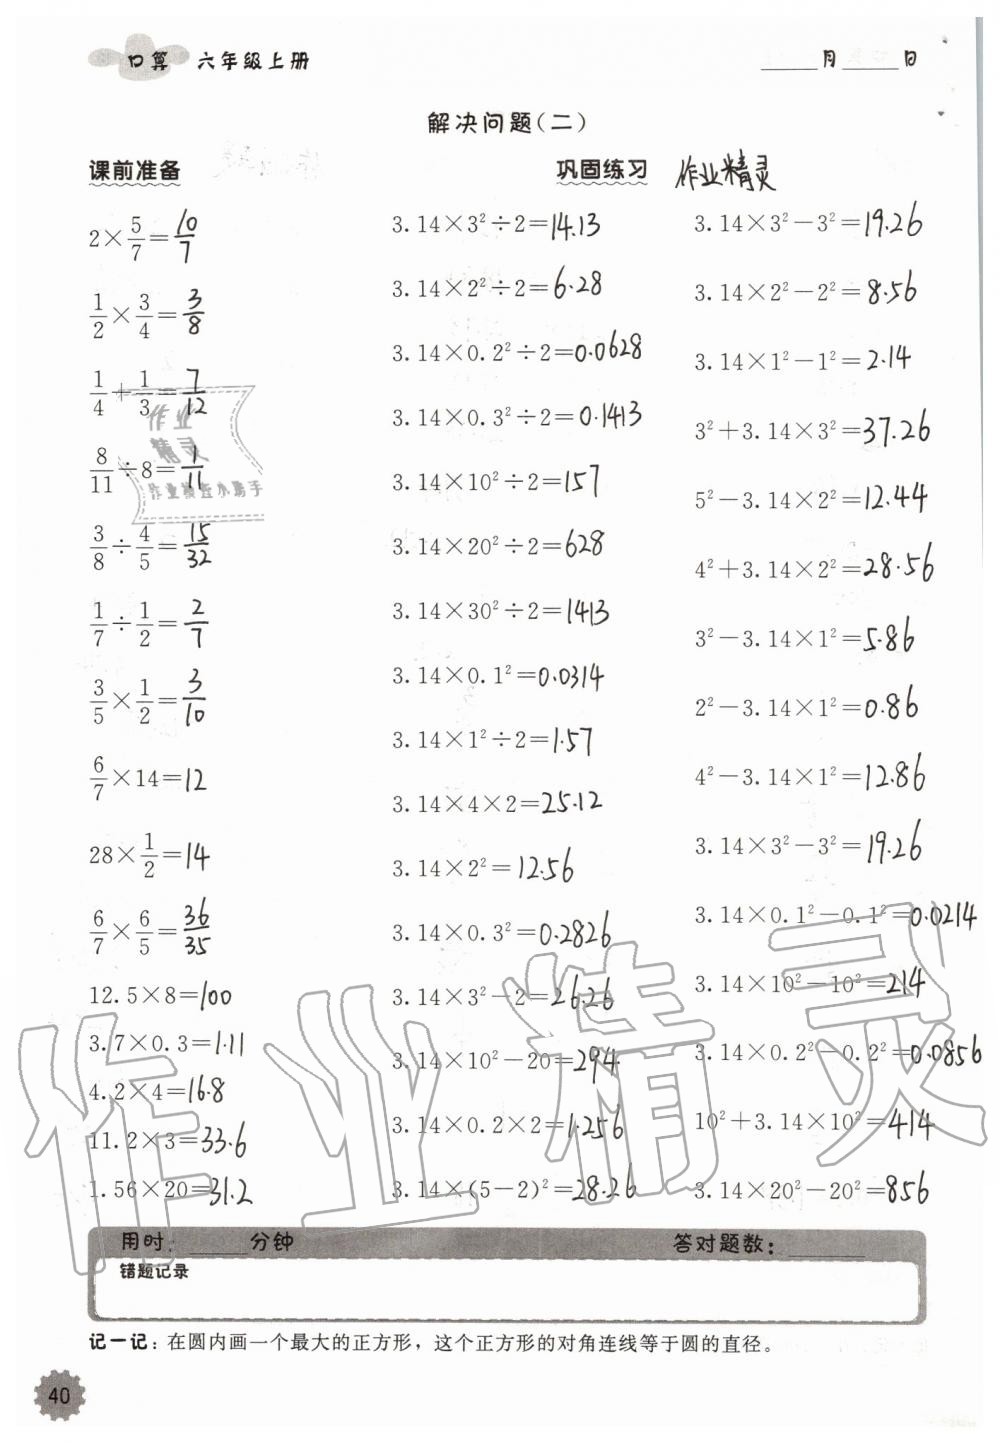 口算 六年级上册 ____月____日
解决问题(二)
课前准备
2×5/7=10/7
1/2×3/4=3/8
1/4+1/3=7/12
8/11÷8=1/11
3/8÷4/5=15/32
1/7÷1/2=2/7
3/5×1/2=3/10
6/7×14=12
28×1/2=14
6/7×6/5=36/35
12.5×8=100
3.7×0.3=1.11
4.2×4=16.8
11.2×3=33.6
1.56×20=31.2
巩固练习 作业精灵
3.14×3²÷2=14.13
3.14×2²÷2=6.28
3.14×0.2²÷2=0.0628
3.14×0.3²÷2=0.1413
3.14×10²÷2=157
3.14×20²÷2=628
3.14×30²÷2=1413
3.14×0.1²=0.0314
3.14×1²÷2=1.57
3.14×4×2=25.12
3.14×2²=12.56
3.14×0.3²=0.2826
3.14×3²-2=26.26
3.14×10²-20=294
3.14×0.2×2=1.256
3.14×(5-2)²=28.26
3.14×3²-3²=19.26
3.14×2²-2²=8.56
3.14×1²-1²=2.14
3²+3.14×3²=37.26
5²-3.14×2²=12.44
4²+3.14×2²=28.56
3²-3.14×1²=5.86
2²-3.14×1²=0.86
4²-3.14×1²=12.86
3.14×3²-3²=19.26
3.14×0.1²-0.1²=0.0214
3.14×10²-10²=214
3.14×0.2²-0.2²=0.0856
10²+3.14×10²=414
3.14×20²-20²=856
作业
精灵
作业检查小助手
作业精灵
用时:____分钟 答对题数:____
错题记录
记一记:在圆内画一个最大的正方形，这个正方形的对角连线等于圆的直径。
40